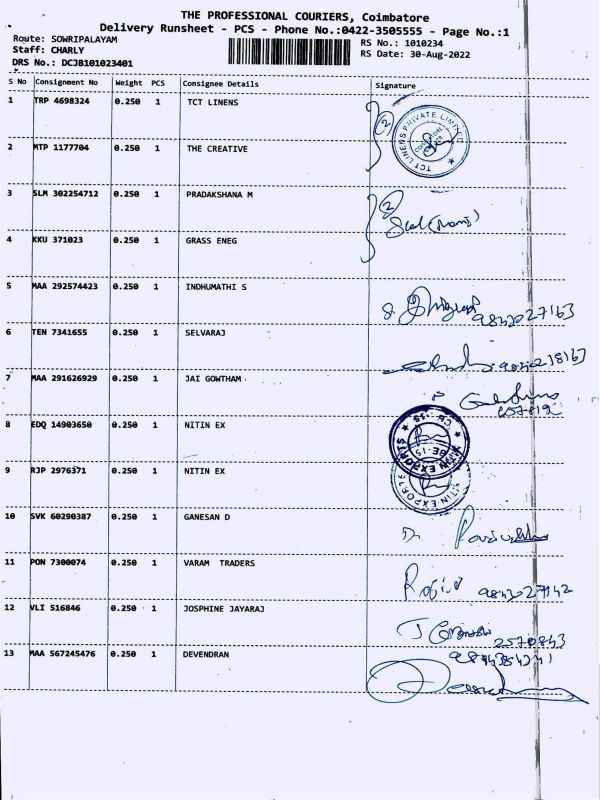 THE PROFESSIONAL COURIERS, Coimbatore
Delivery Runsheet - PCS - Phone No.:0422-3505555 - Page No.:1
Route: SOWRIPALAYAM
Staff: CHARLY
DRS No.: DCJB101023401
RS No.: 1010234
RS Date: 30-Aug-2022
S No Consignment No Weight PCS Consignee Details Signature
1 TRP 4698324 0.250 1 TCT LINENS
2 MTP 1177704 0.250 1 THE CREATIVE
(2)
TCT LINENS PRIVATE LIMITED
3 SLM 302254712 0.250 1 PRADAKSHANA M
4 KKU 371023 0.250 1 GRASS ENEG
(2)
5 MAA 292574423 0.250 1 INDHUMATHI S
6 TEN 7341655 0.250 1 SELVARAJ
7 MAA 291626929 0.250 1 JAI GOWTHAM
8 EDQ 14903650 0.250 1 NITIN EX
NITIN EXPORTS
9 RJP 2976371 0.250 1 NITIN EX
NITIN EXPORTS
10 SVK 60290387 0.250 1 GANESAN D
11 PON 7300074 0.250 1 VARAM TRADERS
12 VLI 516846 0.250 1 JOSPHINE JAYARAJ
2570843
13 MAA 567245476 0.250 1 DEVENDRAN